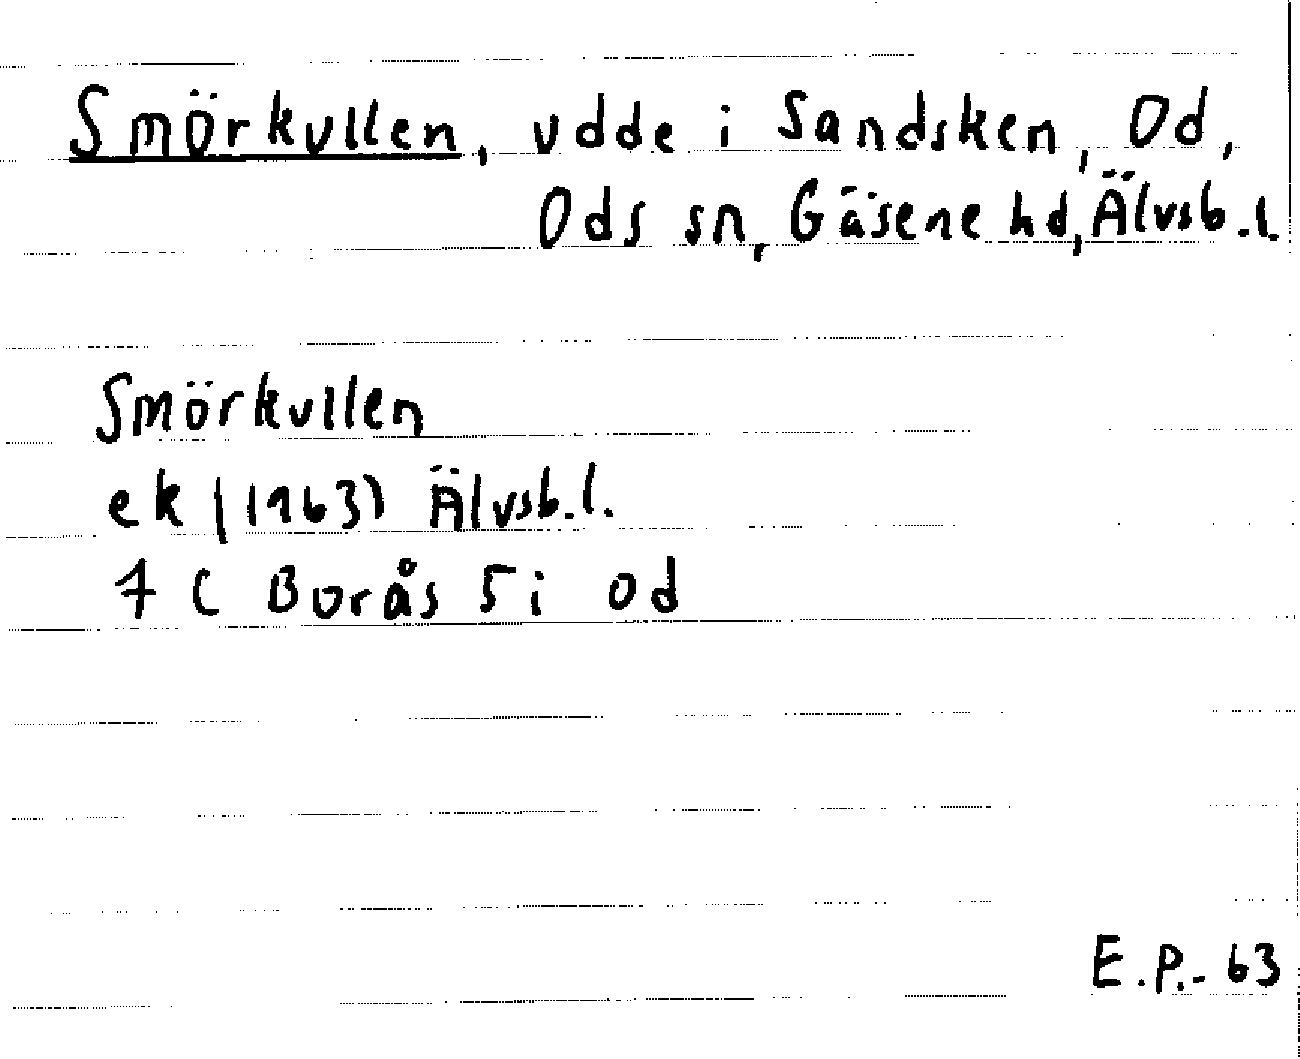 Smörkullen, udde i Sandsken, Od,
Ods sn, Gäsene hd, Älvsb.l.
Smörkullen
ek (1963) Älvsb.l.
7 C Borås 5 i Od
E.P.-63